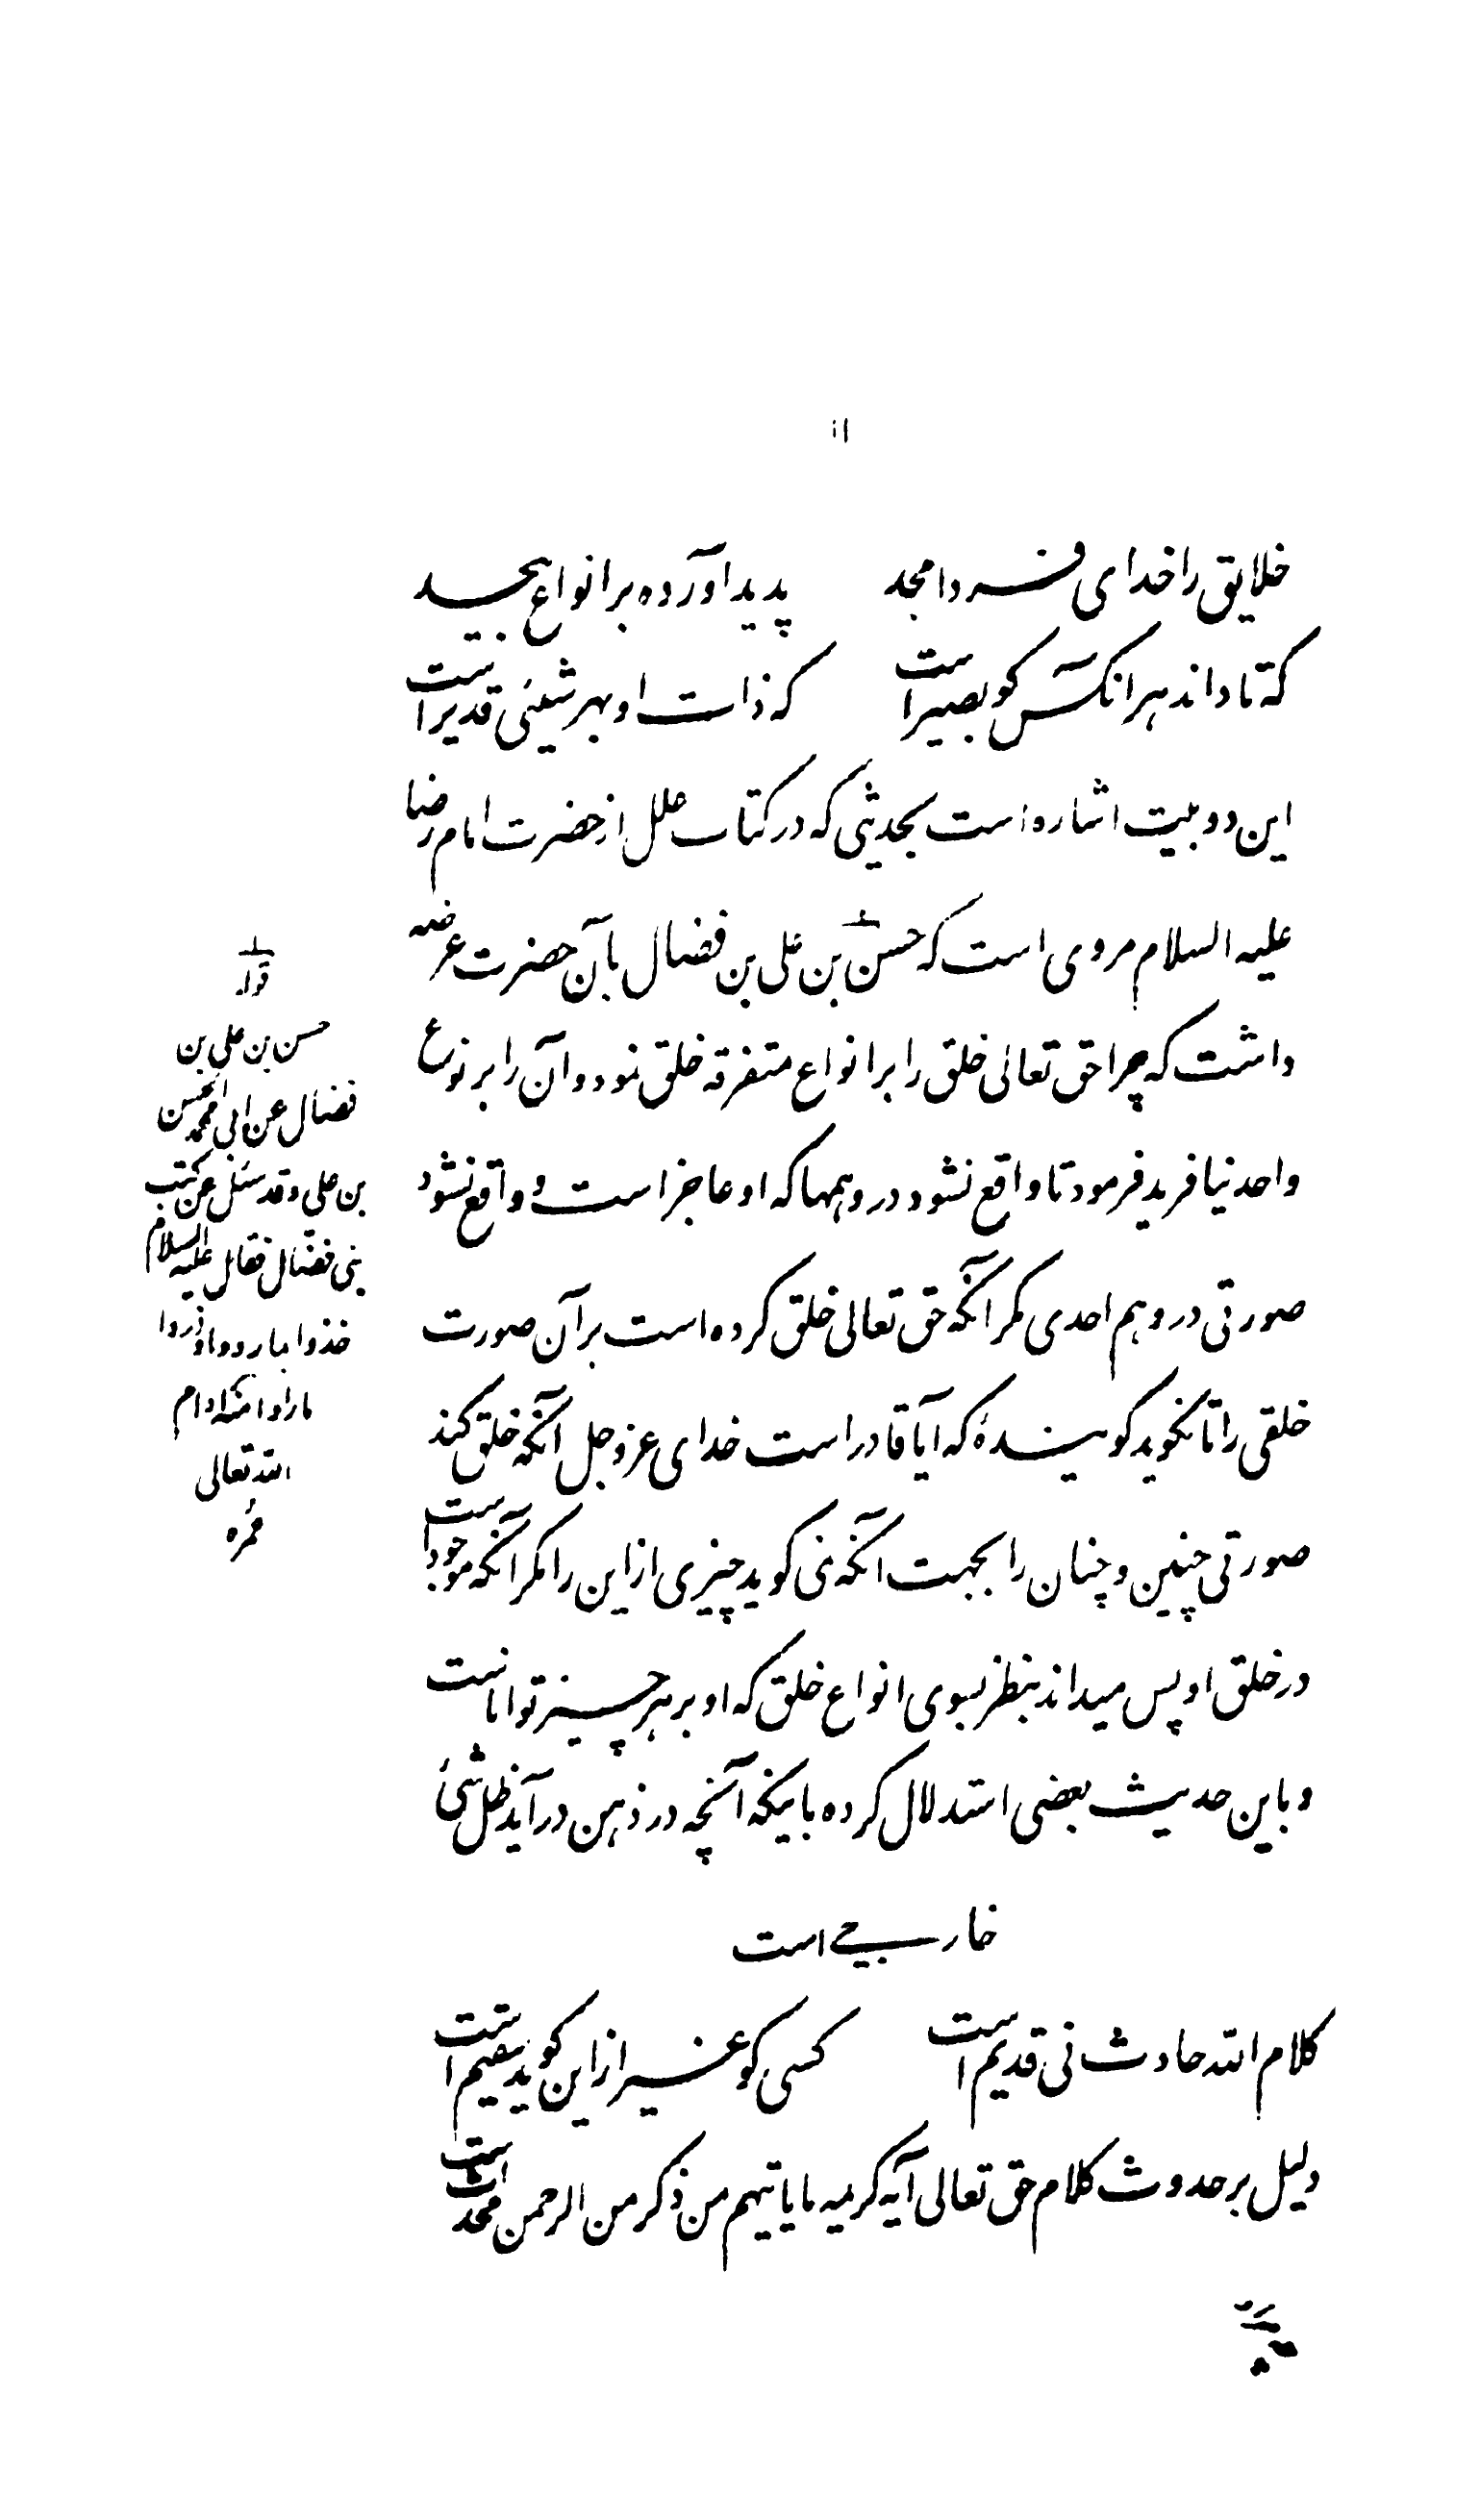 خلایق را خدای فرد امجد پدید آورده بر انواع بیحد
که تا داند هر انکس کو بصیر است که ذات او بهر شیئی قدیر است
این دو بیت اشاره است بحدیثی که در کتاب علل از حضرت امام رضا
علیه السلام مروی است که حسن بن علی بن فضال بآن حضرت عرضه
داشت که چرا حق تعالی خلق را بر انواع متفرقه خلق نمود و آن را بر نوع
واحد نیافرید فرمود تا واقع نشود در وهمها که او عاجز است و واقع نشود
صورتی در وهم احدی مگر آنکه حق تعالی خلق کرده است بر آن صورت
خلقی را تا نگوید گوینده که آیا قادر است خدای عز و جل آنکه خلق کند
صورتی چنین و چنان را بجهت آنکه نمی گوید چیزی از این را مگر آنکه موجود است
در خلق او پس میداند بنظر بسوی انواع خلق که او بر هر چیز تواناست
و باین حدیث بعضی استدلال کرده باینکه آنچه در ذهن در آید ظل شیئ
خارجی است
کلام الله حادث نی قدیم است کسی کو غیر از این گوید سقیم است
دلیل بر حدوث کلام حق تعالی آیه کریمه ما یأتیهم من ذکر من الرحمن محدث است
قوله
حسن بن علی بن
فضال عن ابی محمد الحسن
بن علی و قد سئل عن کتب
بنی فضال فقال علیه السلام
خذوا بما رووا و ذروا
ما راوا منه ادام
الله تعالی
عمره